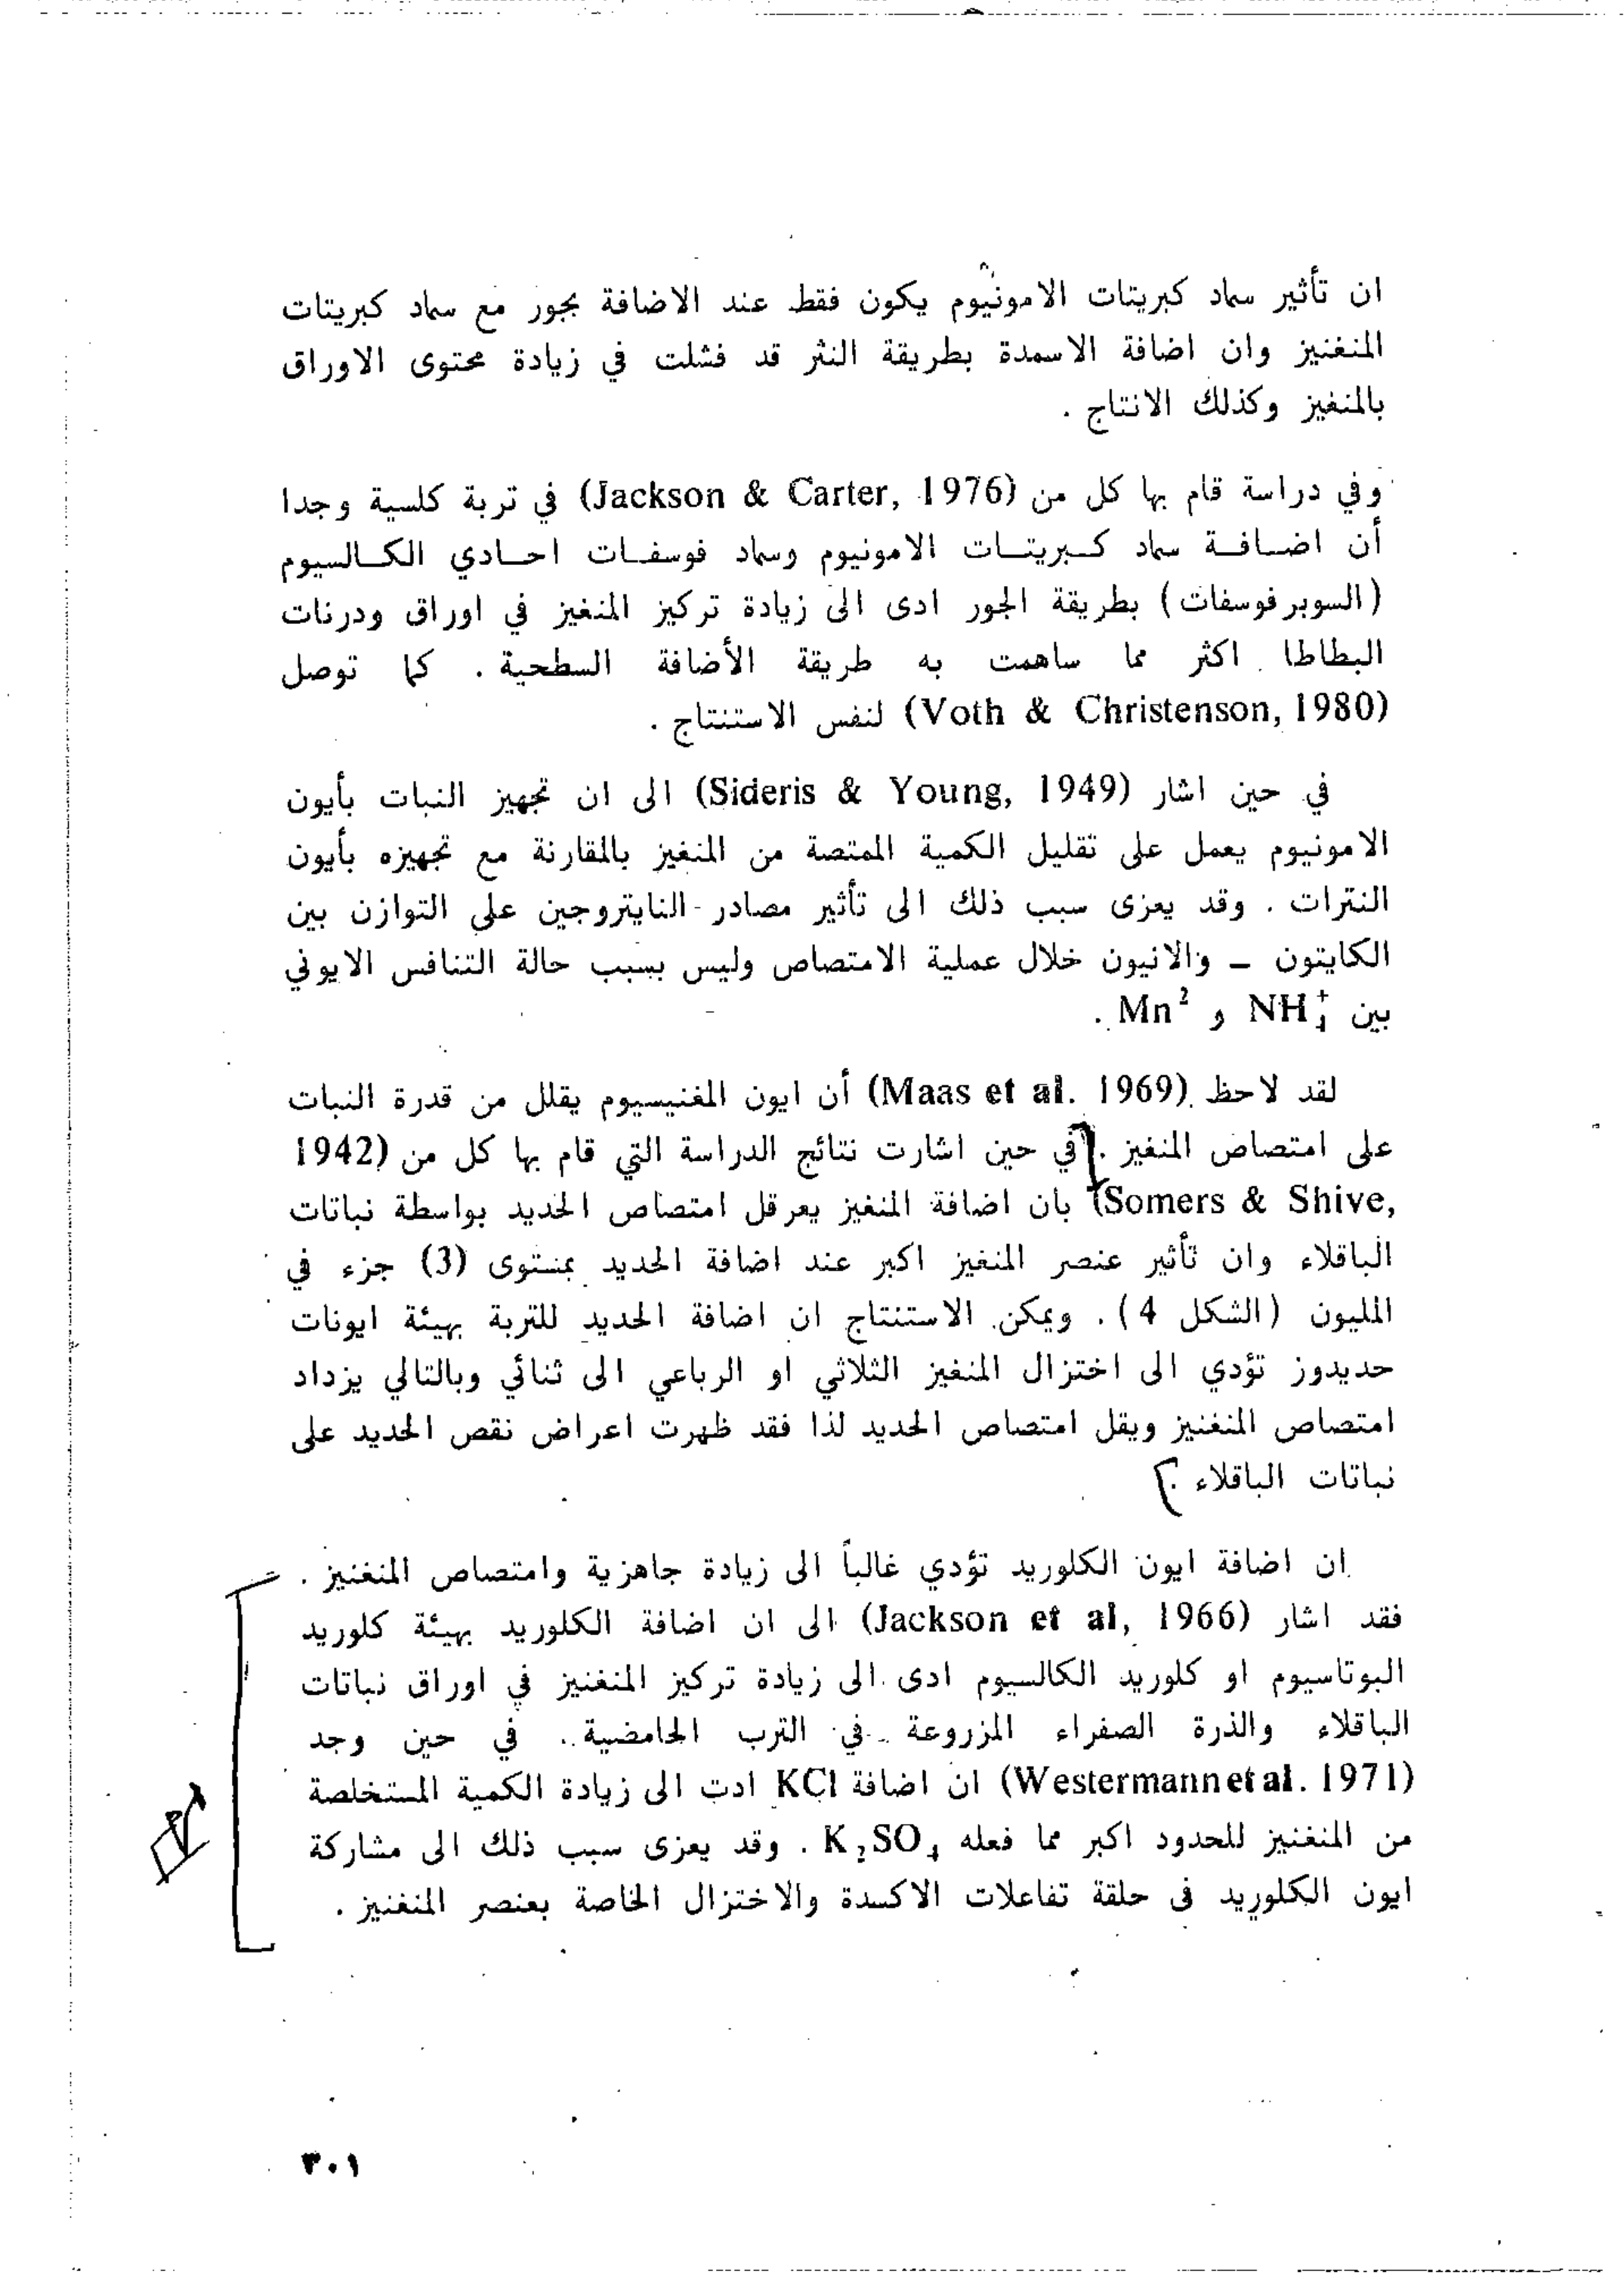 ان تأثير سماد كبريتات الامونيوم يكون فقط عند الاضافة بجور مع سماد كبريتات
المنغنيز وان اضافة الاسمدة بطريقة النثر قد فشلت في زيادة محتوى الاوراق
بالمنغيز وكذلك الانتاج .
وفي دراسة قام بها كل من (Jackson & Carter, 1976) في تربة كلسية وجدا
أن اضافة سماد كبريتات الامونيوم وسماد فوسفات احادي الكالسيوم
(السوبر فوسفات) بطريقة الجور ادى الى زيادة تركيز المنغيز في اوراق ودرنات
البطاطا اكثر مما ساهمت به طريقة الأضافة السطحية . كما توصل
(Voth & Christenson, 1980) لنفس الاستنتاج .
في حين اشار (Sideris & Young, 1949) الى ان تجهيز النبات بأيون
الامونيوم يعمل على تقليل الكمية الممتصة من المنغيز بالمقارنة مع تجهيزه بأيون
النترات . وقد يعزى سبب ذلك الى تأثير مصادر النايتروجين على التوازن بين
الكايتون – والانيون خلال عملية الامتصاص وليس بسبب حالة التنافس الايوني
بين NH₄⁺ و Mn² .
لقد لاحظ (Maas et al. 1969) أن ايون المغنيسيوم يقلل من قدرة النبات
على امتصاص المنغيز . في حين اشارت نتائج الدراسة التي قام بها كل من (1942
Somers & Shive,) بان اضافة المنغيز يعرقل امتصاص الحديد بواسطة نباتات
الباقلاء وان تأثير عنصر المنغيز اكبر عند اضافة الحديد بمستوى (3) جزء في
المليون (الشكل 4) . ويمكن الاستنتاج ان اضافة الحديد للتربة بهيئة ايونات
حديدوز تؤدي الى اختزال المنغيز الثلاثي او الرباعي الى ثنائي وبالتالي يزداد
امتصاص المنغنيز ويقل امتصاص الحديد لذا فقد ظهرت اعراض نقص الحديد على
نباتات الباقلاء .
ان اضافة ايون الكلوريد تؤدي غالباً الى زيادة جاهزية وامتصاص المنغنيز .
فقد اشار (Jackson et al, 1966) الى ان اضافة الكلوريد بهيئة كلوريد
البوتاسيوم او كلوريد الكالسيوم ادى الى زيادة تركيز المنغنيز في اوراق نباتات
الباقلاء والذرة الصفراء المزروعة في الترب الحامضية . في حين وجد
(Westermann et al. 1971) ان اضافة KCl ادت الى زيادة الكمية المستخلصة
من المنغنيز للحدود اكبر مما فعله K₂SO₄ . وقد يعزى سبب ذلك الى مشاركة
ايون الكلوريد في حلقة تفاعلات الاكسدة والاختزال الخاصة بعنصر المنغنيز .
٣٠١